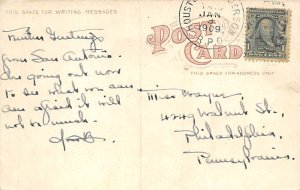 THIS SPACE FOR WRITING MESSAGES
Greetings
from San Antonio.
are going out now
to see what we can
am afraid it will
not be much.
POST CARD
THIS SPACE FOR ADDRESS ONLY
JAN
1909
R.P.O.
Miss Wayne
Walnut St.,
Philadelphia,
Pennsylvania.